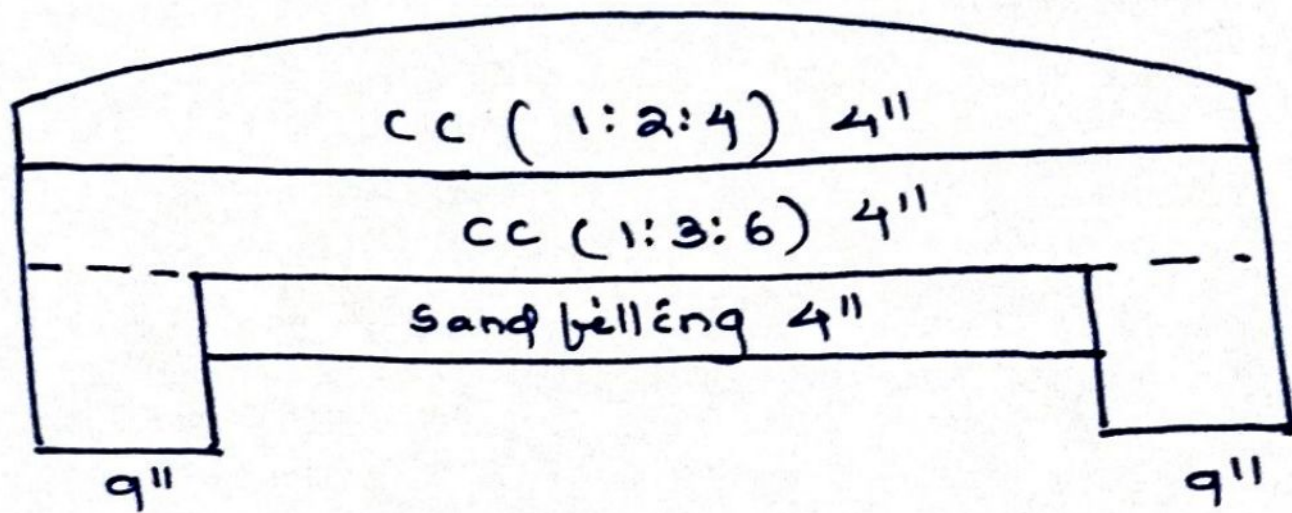 CC ( 1:2:4) 4"
CC (1:3:6) 4"
Sand filling 4"
9" 9"